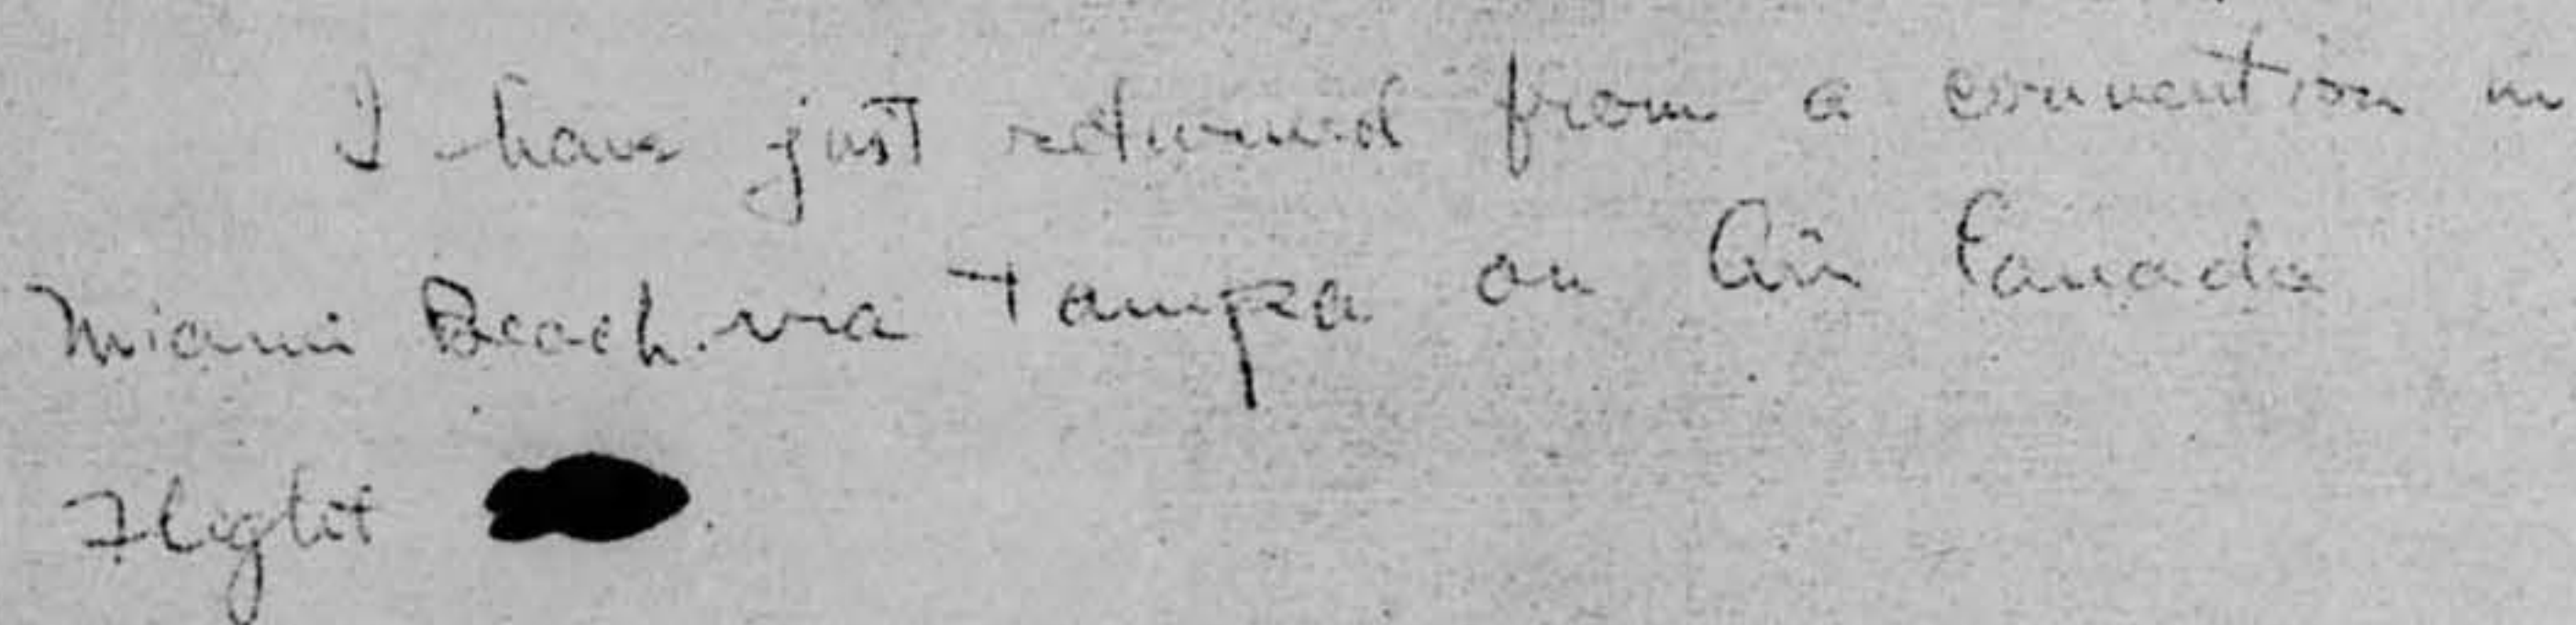 I have just returned from a convention in
Miami Beach via Tampa on Air Canada
Flight